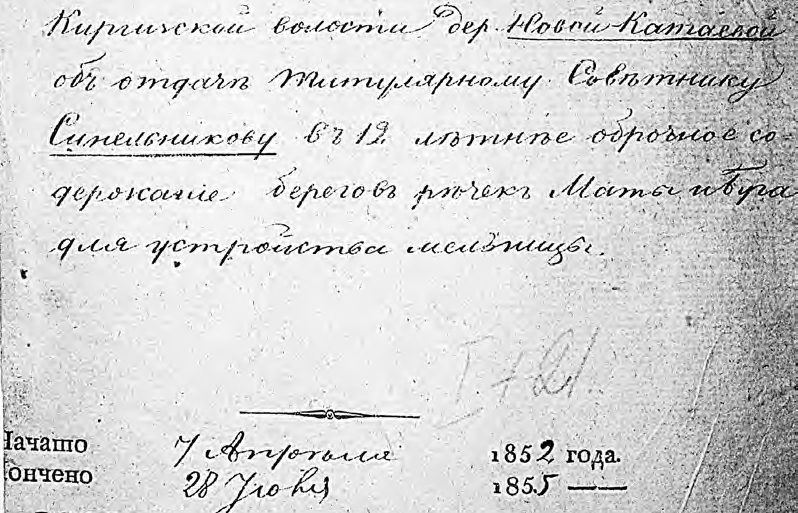 Киргизской волости дер. Новой-Катаевой
объ отдачѣ Титулярному Совѣтнику
Синельникову въ 12 лѣтнѣе оброчное со-
держаніе береговъ рѣчекъ Маты и Буга
для устройства мельницы.
I + 21
Начато 7 Апрѣля 1852 года.
кончено 28 Июня 1855 —